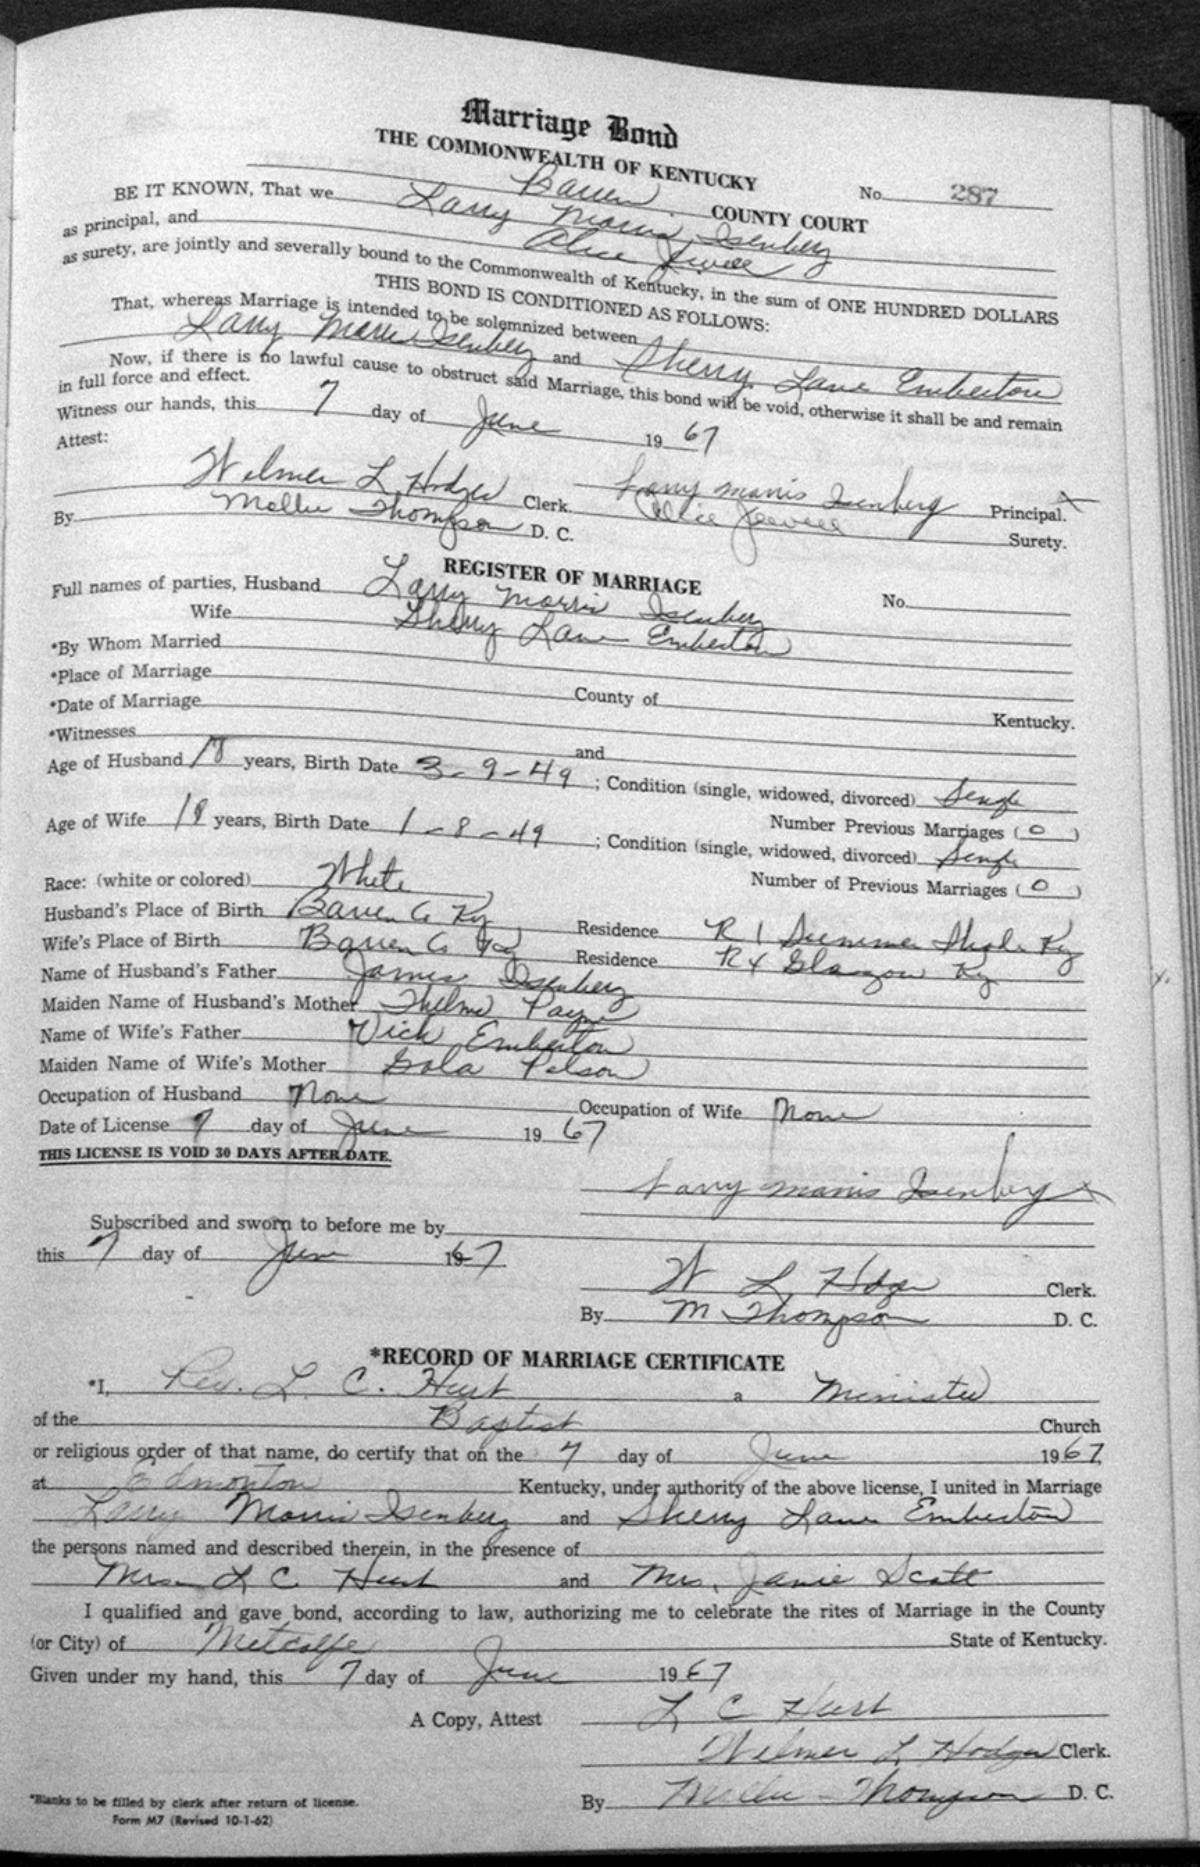 Marriage Bond
THE COMMONWEALTH OF KENTUCKY
No. 287
Barren COUNTY COURT
BE IT KNOWN, That we Larry Morris Isenberg
as principal, and Alice Jewell
as surety, are jointly and severally bound to the Commonwealth of Kentucky, in the sum of ONE HUNDRED DOLLARS
THIS BOND IS CONDITIONED AS FOLLOWS:
That, whereas Marriage is intended to be solemnized between
Larry Morris Isenberg and Sherry Lane Emberton
Now, if there is no lawful cause to obstruct said Marriage, this bond will be void, otherwise it shall be and remain
in full force and effect.
Witness our hands, this 7 day of June 1967
Attest:
Wilmer L Hodges Clerk. Larry Morris Isenberg Principal.
By Mollie Thompson D. C. Alice Jewell Surety.
REGISTER OF MARRIAGE
Full names of parties, Husband Larry Morris Isenberg No.
Wife Sherry Lane Emberton
*By Whom Married
*Place of Marriage County of Kentucky.
*Date of Marriage
*Witnesses and
Age of Husband 18 years, Birth Date 3-9-49; Condition (single, widowed, divorced) Single
Number Previous Marriages (0)
Age of Wife 18 years, Birth Date 1-8-49; Condition (single, widowed, divorced) Single
Number of Previous Marriages (0)
Race: (white or colored) White
Husband's Place of Birth Barren Co Ky Residence R 1 Summer Shade Ky
Wife's Place of Birth Barren Co Ky Residence R4 Glasgow Ky
Name of Husband's Father James Isenberg
Maiden Name of Husband's Mother Thelma Payne
Name of Wife's Father Dick Emberton
Maiden Name of Wife's Mother Gola
Occupation of Husband None Occupation of Wife None
Date of License 7 day of June 1967
THIS LICENSE IS VOID 30 DAYS AFTER DATE.
Larry Morris Isenberg
Subscribed and sworn to before me by
this 7 day of June 1967
W L Hodges Clerk.
By M Thompson D. C.
*RECORD OF MARRIAGE CERTIFICATE
*I, Rev. L. C. Hurt a Minister
of the Baptist Church
or religious order of that name, do certify that on the 7 day of June 1967
at Edmonton Kentucky, under authority of the above license, I united in Marriage
Larry Morris Isenberg and Sherry Lane Emberton
the persons named and described therein, in the presence of
Mrs L C Hurt and Mrs. Janie Scott
I qualified and gave bond, according to law, authorizing me to celebrate the rites of Marriage in the County
(or City) of Metcalfe State of Kentucky.
Given under my hand, this 7 day of June 1967
L C Hurt
A Copy, Attest
Wilmer L Hodges Clerk.
By Mollie Thompson D. C.
*Blanks to be filled by clerk after return of license.
Form M7 (Revised 10-1-62)